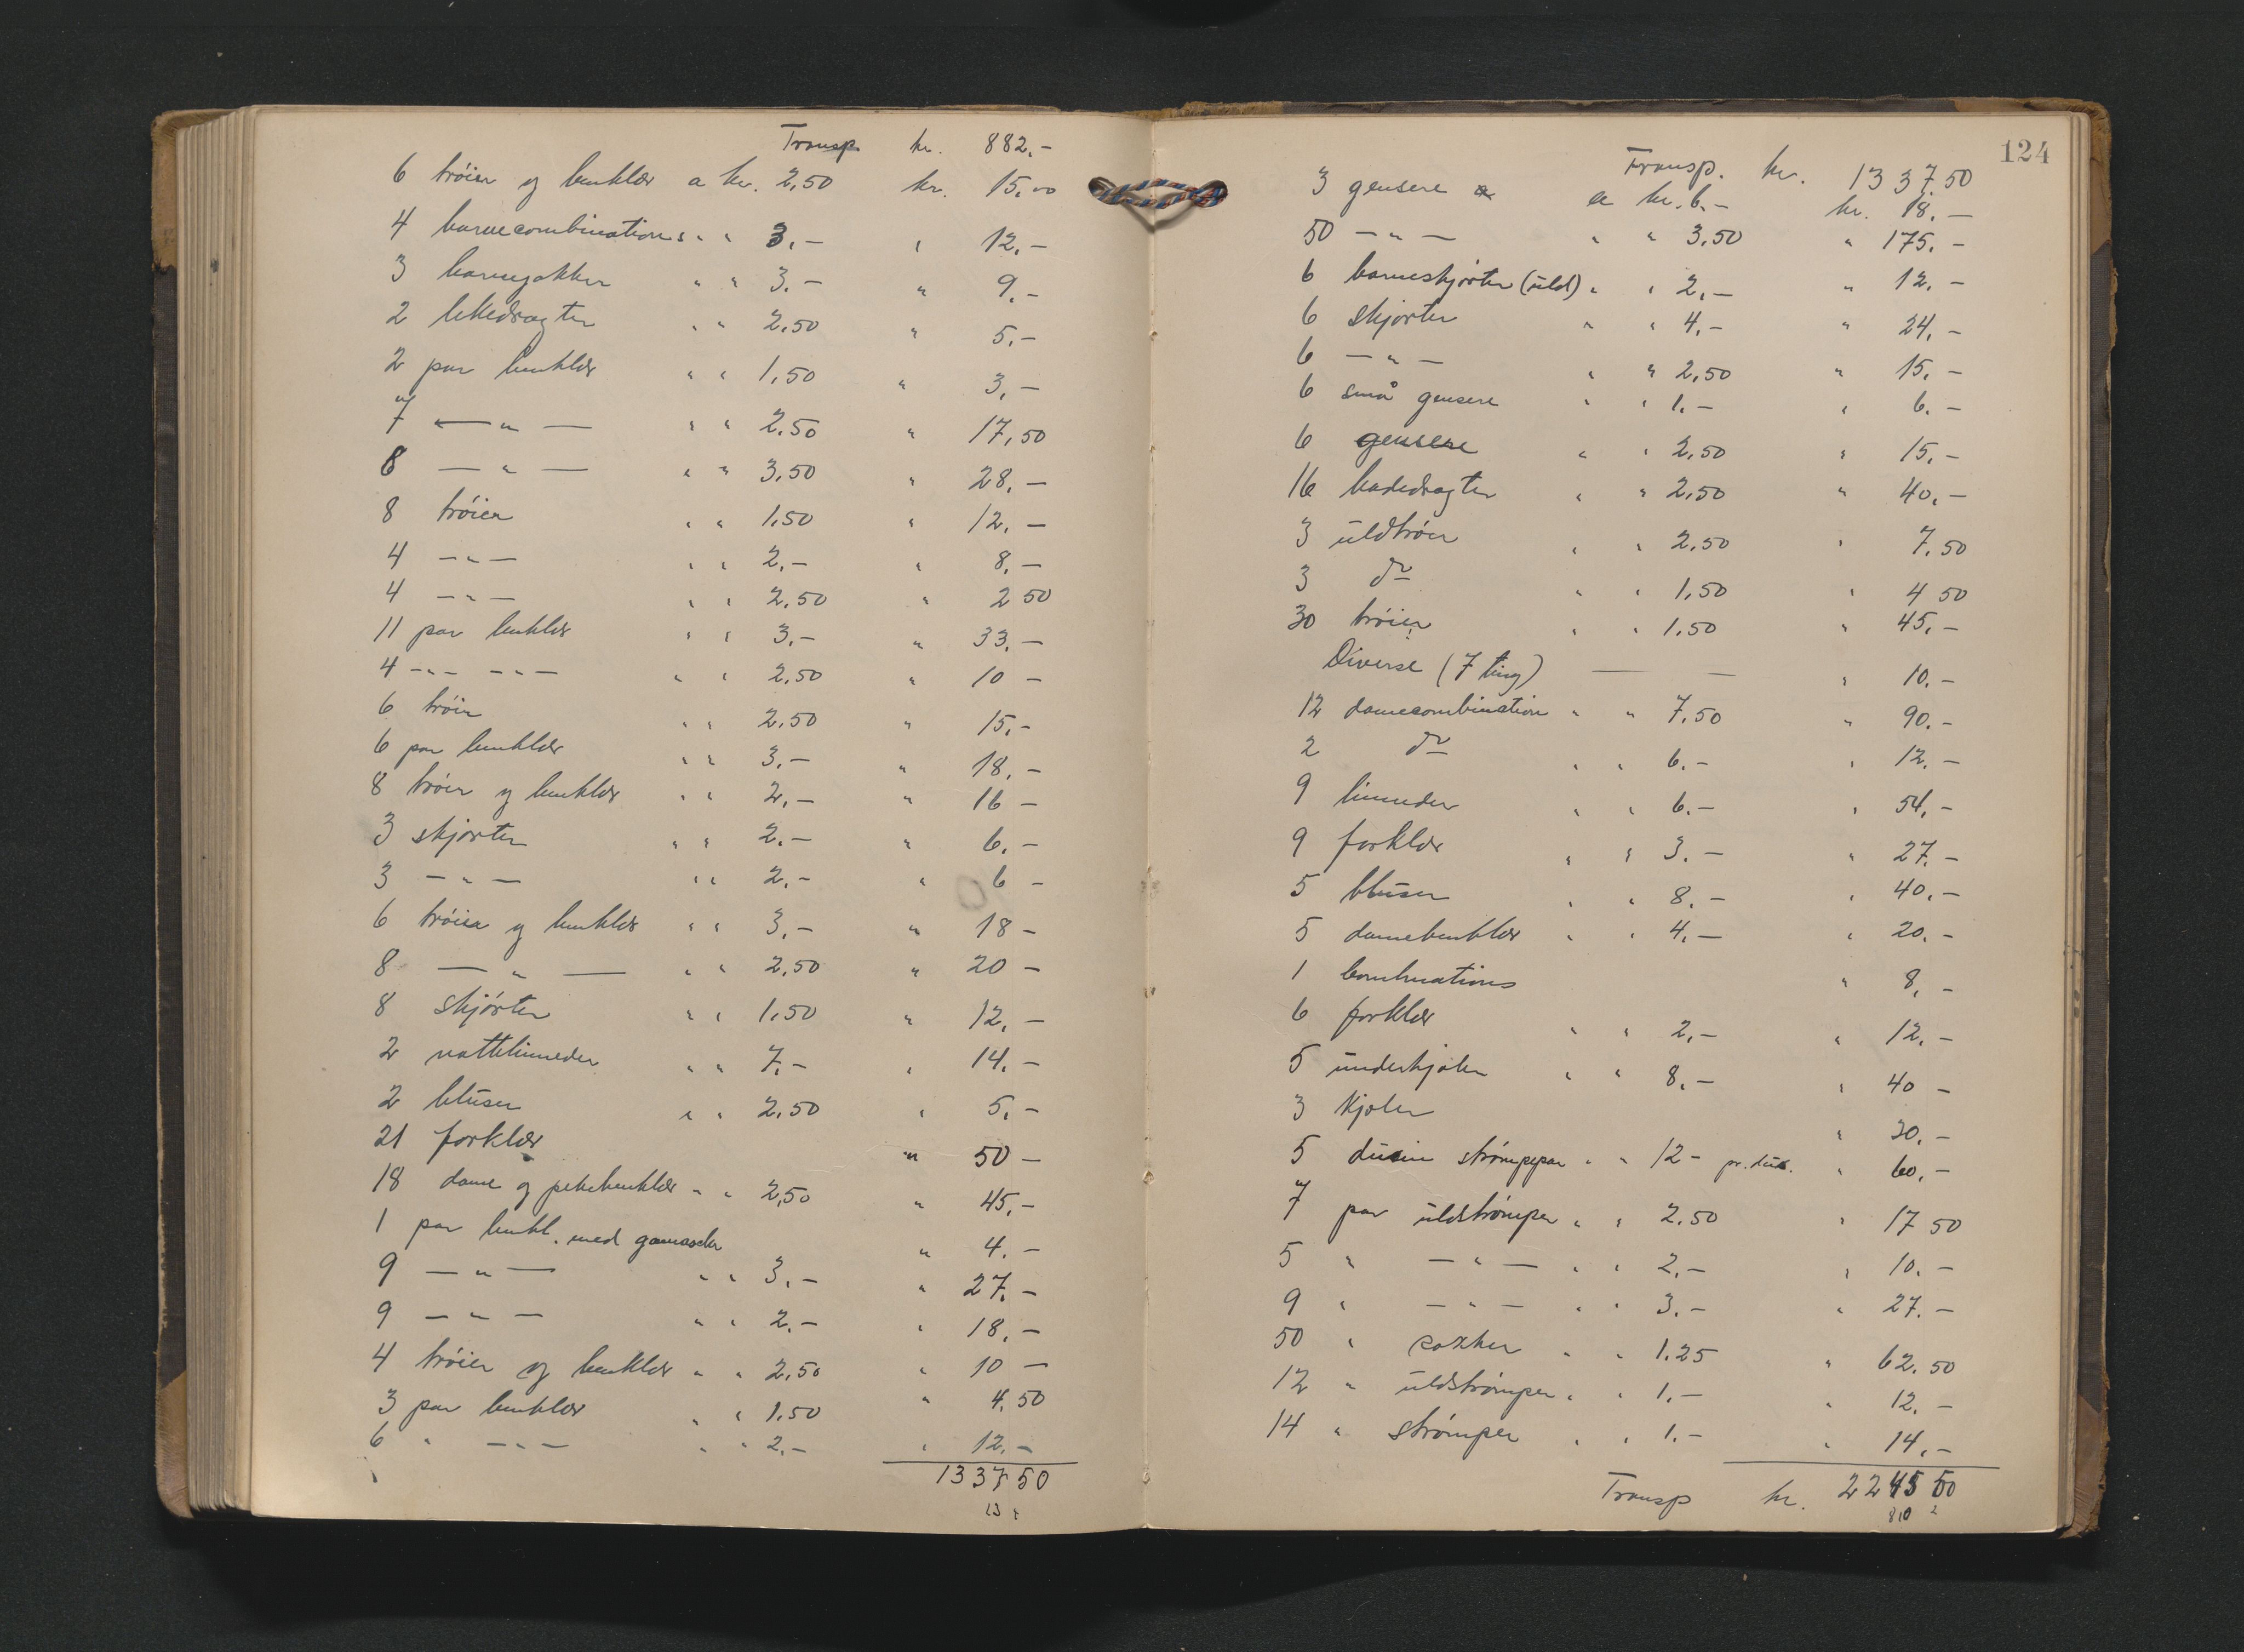 Transp. kr. 882.-
6 trøier og benklær a kr. 2,50 kr. 15.00
4 barnecombinations " " 3.- " 12.-
3 barnejakker " " 3.- " 9.-
2 lekedragter " " 2.50 " 5.-
2 par benklær " " 1,50 " 3,-
7 — " — " " 2.50 " 17,50
8 — " — " " 3,50 " 28.-
8 trøier " " 1.50 " 12.-
4 — " — " " 2.- " 8.-
4 — " — " " 2,50 " 2 50
11 par benklær " " 3.- " 33.-
4 -"- -"- " " 2,50 " 10 -
6 trøier " " 2.50 " 15.-
6 par benklær " " 3.- " 18.-
8 trøier og benklær " " 2.- " 16 -
3 skjorter " " 2.- " 6.-
3 — " — " " 2.- " 6 -
6 trøier og benklær " " 3.- " 18 -
8 — " — " " 2,50 " 20 -
8 skjørter " " 1.50 " 12.-
2 nattlinneder " " 7.- " 14.-
2 bluser " " 2,50 " 5.-
21 forklær " 50 -
18 dame og pikebenklær " " 2,50 " 45.-
1 par benkl. med gamascher " 4.-
9 — " — " " 3.- " 27.-
9 — " — " " 2.- " 18.-
4 trøier og benklær " " 2,50 " 10 -
3 par benklær " " 1.50 " 4.50
6 " — " — " " 2.- " 12.-
1337 50
13
124
Transp. kr. 1337.50
3 gensere a kr. 6.- kr. 18.-
50 — " — " " 3,50 " 175.-
6 barneskjorter (uld) " " 2,- " 12.-
6 skjorter " " 4.- " 24.-
6 — " — " " 2,50 " 15.-
6 små gensere " " 1.- " 6.-
6 gensere " " 2,50 " 15.-
16 badedragter " " 2,50 " 40.-
3 uldtrøier " " 2.50 " 7.50
3 do " " 1,50 " 4 50
30 trøier " " 1.50 " 45.-
Diverse (7 ting) — — " 10.-
12 damecombination " " 7.50 " 90.-
2 do " " 6.- " 12.-
9 linneder " " 6.- " 54.-
9 forklær " " 3.- " 27.-
5 bluser " " 8.- " 40.-
5 damebenklær " " 4.- " 20.-
1 combinations " 8.-
6 forklær " " 2,- " 12.-
5 underkjoler " " 8.- " 40 -
3 kjoler " 30.-
5 dusin strømpepar " " 12- pr. dus. " 60.-
7 par uldstrømper " " 2.50 " 17 50
5 " — " — " " 2.- " 10.-
9 " — " — " " 3.- " 27.-
50 " sokker " " 1.25 " 62.50
12 " uldstrømper " " 1.- " 12.-
14 " strømper " " 1.- " 14.-
Transp kr. 2245 50